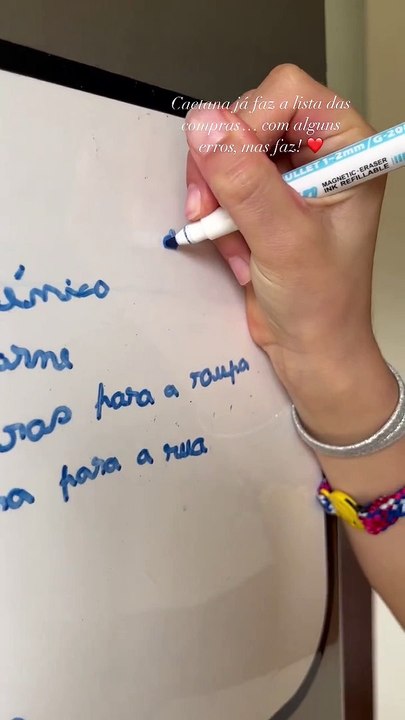 Caetana já faz a lista das
compras... com alguns
erros, mas faz! ❤️
ULLET 1-2mm/G-20
MAGNETIC·ERASER
INK REFILLABLE
para a roupa
para a rua